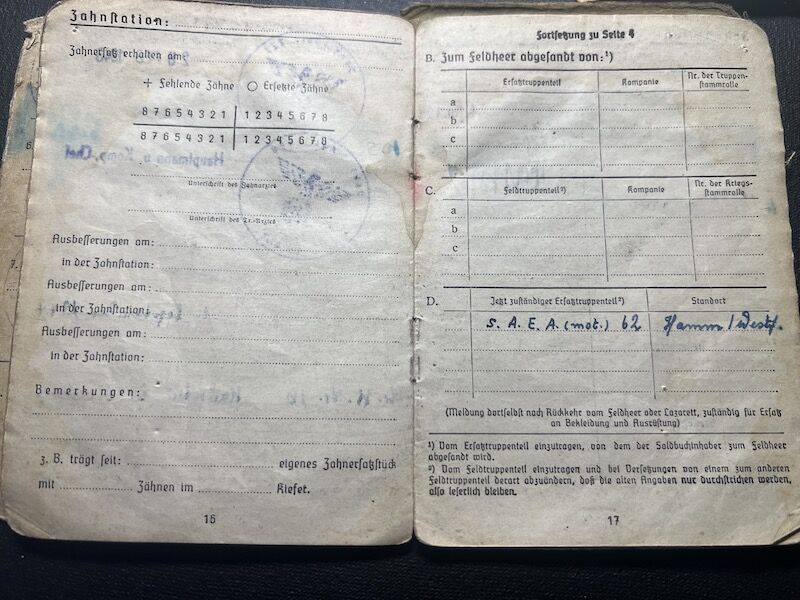 Zahnstation:
Zahnersatz erhalten am
+ Fehlende Zähne ○ Ersetzte Zähne
8 7 6 5 4 3 2 1 | 1 2 3 4 5 6 7 8
8 7 6 5 4 3 2 1 | 1 2 3 4 5 6 7 8
Hauptmann u. Komp. Chef
Unterschrift des Zahnarztes
Unterschrift des Tr.-Arztes
Ausbesserungen am:
in der Zahnstation:
Ausbesserungen am:
in der Zahnstation:
Ausbesserungen am:
in der Zahnstation:
Bemerkungen:
z. B. trägt seit: eigenes Zahnersatzstück
mit Zähnen im Kiefer.
16
Fortsetzung zu Seite 4
B. Zum Feldheer abgesandt von:¹)
Ersatztruppenteil Kompanie Nr. der Truppen-
stammrolle
a
b
c
C. Feldtruppenteil²) Kompanie Nr. der Kriegs-
stammrolle
a
b
c
D. Jetzt zuständiger Ersatztruppenteil²) Standort
S. A. E. A. (mot.) 62 Hamm / Westf.
(Meldung dortselbst nach Rückkehr vom Feldheer oder Lazarett, zuständig für Ersatz
an Bekleidung und Ausrüstung)
¹) Vom Ersatztruppenteil einzutragen, von dem der Soldbuchinhaber zum Feldheer
abgesandt wird.
²) Vom Feldtruppenteil einzutragen und bei Versetzungen von einem zum anderen
Feldtruppenteil derart abzuändern, daß die alten Angaben nur durchstrichen werden,
also leserlich bleiben.
17